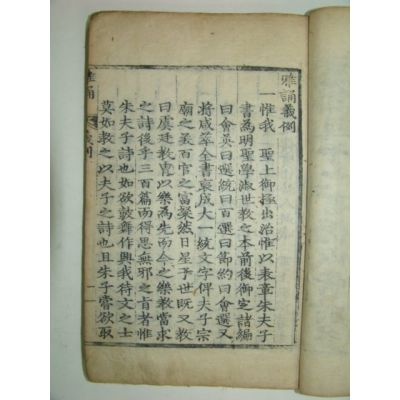 雅誦義例
一惟我 聖上御極出治惟以表章朱夫子
書為明聖學淑世教之本前後御定諸編
曰會英曰選統曰百選曰節約曰會選又
將咸萃全書裒成大一統文字俾夫子宗
廟之美百官之富粲然日星于世既又教
曰虞廷教胄以樂為先而今之樂教當求
之詩後乎三百篇而得思無邪之旨者惟
朱夫子詩也如欲敦舞作興我待文之士
莫如教之以夫子之詩也且朱子嘗欲取
雅誦 義例 一